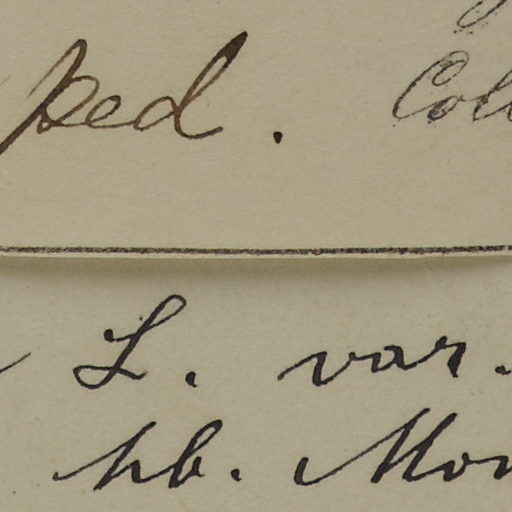 ped. Col
L. var.
hb. Mon